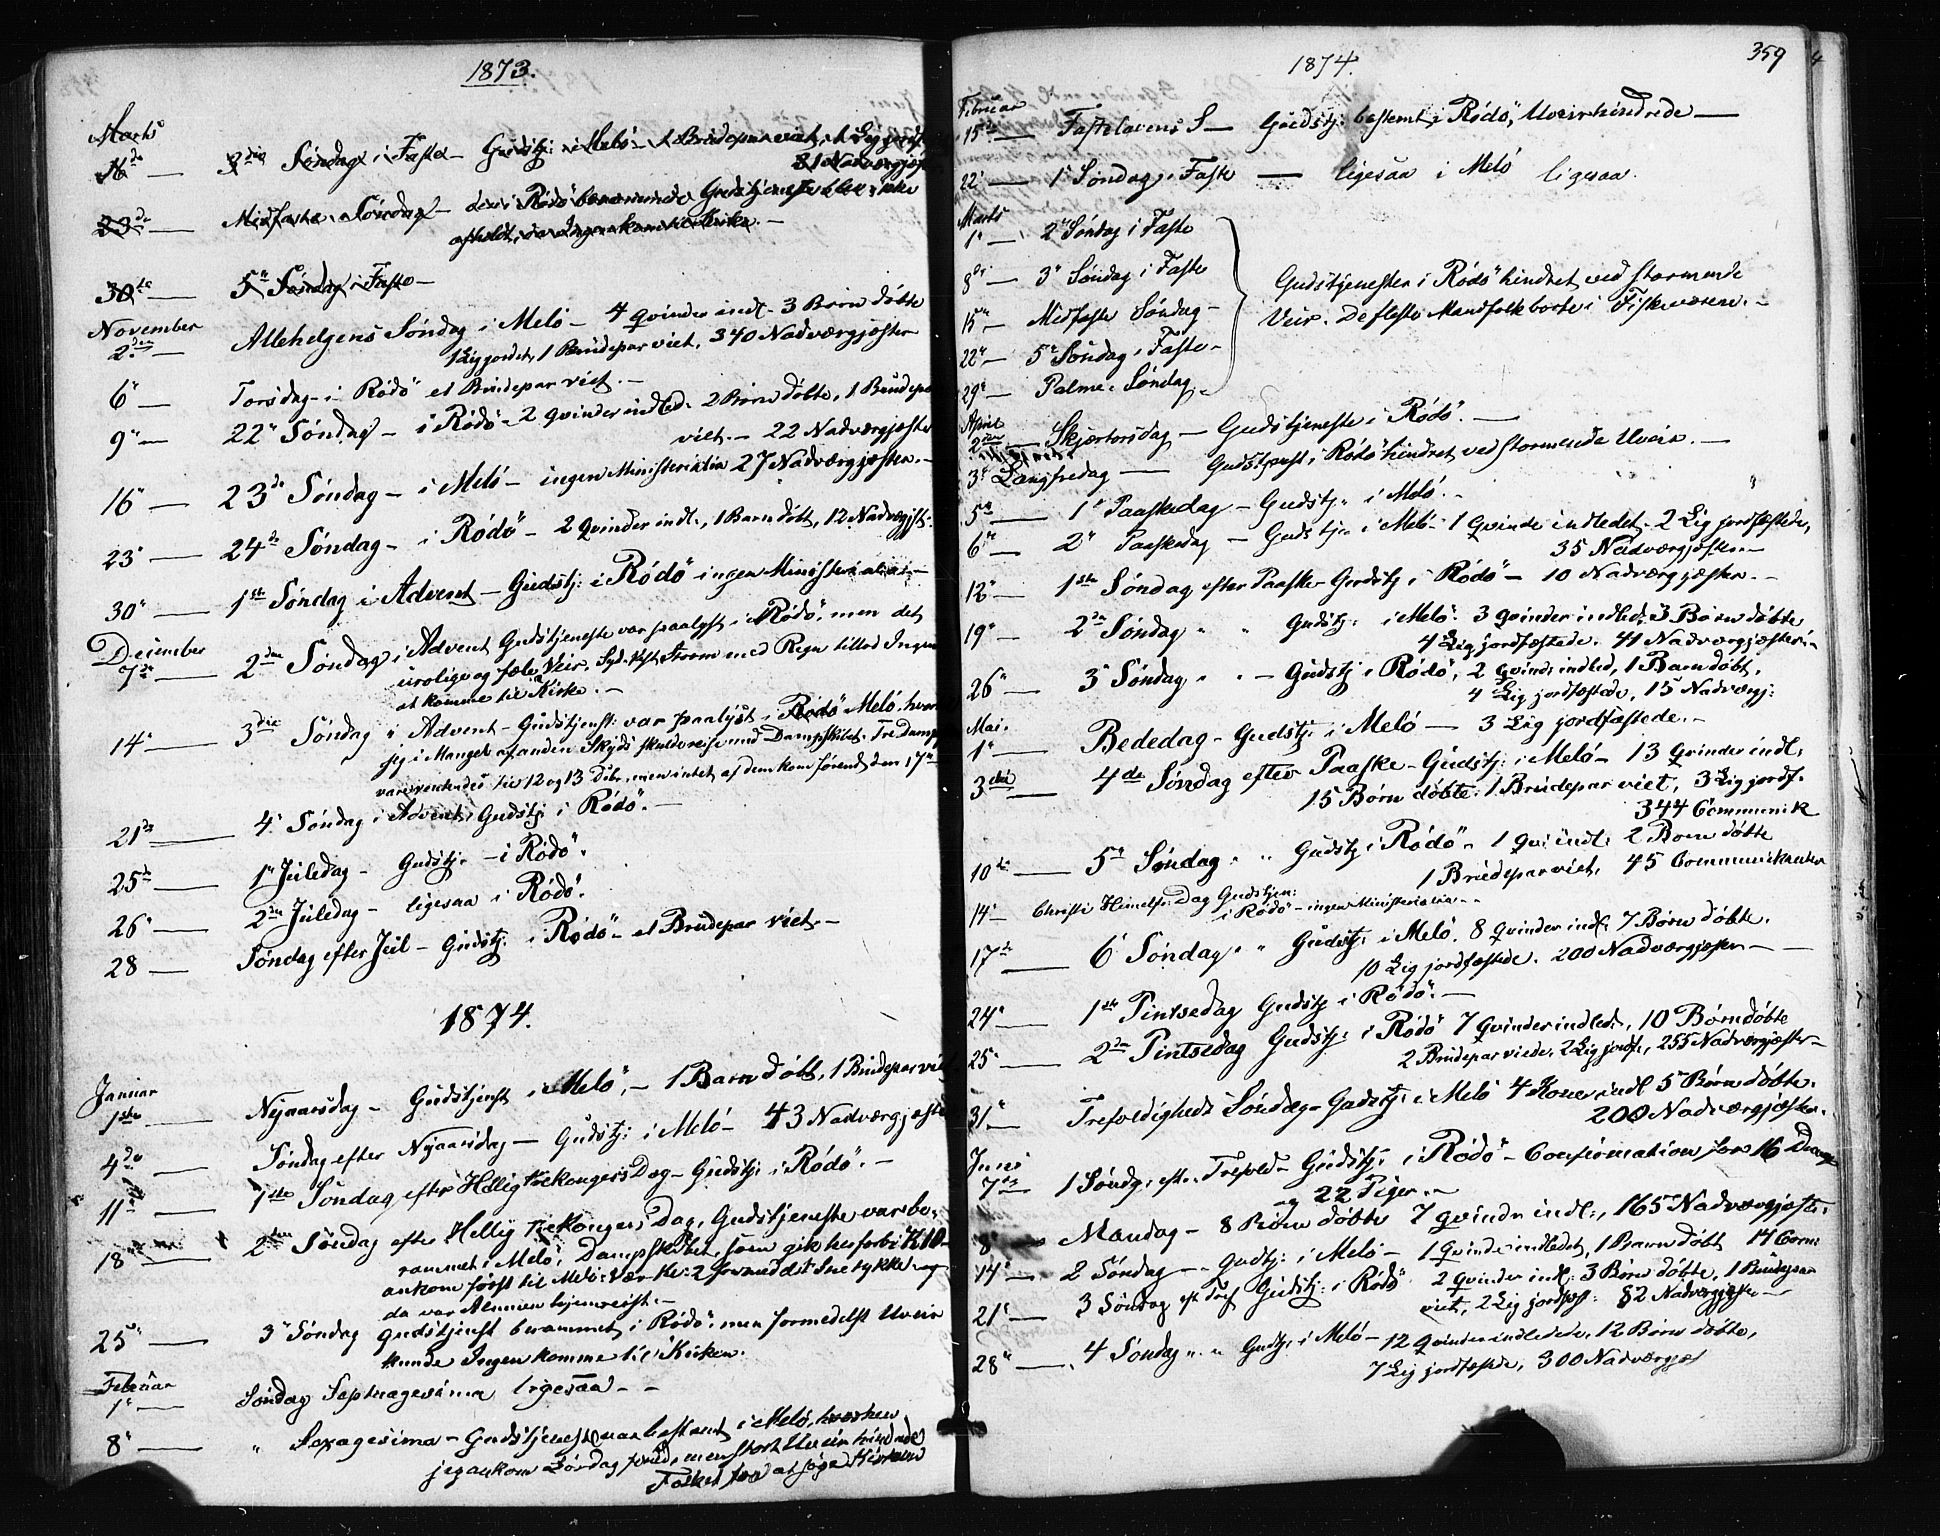 1873.
Marts
16de — 3die Søndag i Faste — Gudstj: i Melö — 1 Brudepar viet, 1 Lig jordf.
81 Nadvergjest
23de — Midfaste Søndag — den i Rödö berammede Gudstjeneste blev ikke
afholdt, da Ingen kom til Kirke. —
30te — 5te Søndag i Faste —
November
2den — Allehelgens Søndag i Melö — 4 Qvinder indl. 3 Børn døbte
1 Lig jordet, 1 Brudepar viet, 340 Nadværgjæster
6" — Torsdag i Rödö et Brudepar viet. —
9" — 22" Søndag — i Rödö — 2 Qvinder indled. 2 Børn døbte, 1 Brudepar
viet. — 22 Nadværgjæster
16" — 23de Søndag — i Melö — ingen Ministerialia 27 Nadværgjæster. —
23" — 24de Søndag — i Rödö — 2 Qvinder indl., 1 Barn døbt, 12 Nadværgjst.
30" — 1ste Søndag i Advent — Gudstj: i Rödö ingen Ministerialia —
December
7de — 2den Søndag i Advent Gudstjeneste var paalyst i Rödö, men det
urolige og fæle Veir. Syd-Vest Storm med Regn tillod Ingen
at komme til Kirke. —
14" — 3die Søndag i Advent — Gudstjenst: var paalyst i Rödö Melö, hvor
jeg i Mangel af anden Skyds skulde reise med Dampskibet. Tre Damp
vare ventendes til 12 og 13 Dcbr., men intet af dem kom førend den 17de
21de — 4" Søndag i Advent, Gudstj: i Rödö. —
25de — 1" Juledag — Gudstj. — i Rödö.
26" — 2den Juledag — ligesaa i Rödö.
28 — Søndag efter Jul — Gudstj. i Rödö — et Brudepar viet. —
1874.
Januar
1ste — Nyaarsdag — Gudstjenst i Melö, — 1 Barn døbt, 1 Brudepar viet
4de — Søndag efter Nyaarsdag — Gudstj: i Melö — 43 Nadværgjæster
11" — 1ste Søndag efter Hellig trekongers Dag — Gudstj: i Rödö. —
18" — 2den Søndag efter Hellig trekongers Dag, Gudstjeneste var be-
rammet i Melö, Dampskibet, som gik her forbi Kl 10
ankom først til Melövær Kl: 2 formedelst Snetykke og
da var Almuen hjemreist. —
25" — 3" Søndag Gudstjenst berammet i Rödö, men formedelst Uveir
kunde Ingen komme til Kirken.
Februar
1" — Søndag Septuagesima ligesaa — —
8" — " Sexagesima — Gudstjenest var bestemt i Melö, hvorhen
jeg ankom Lørdag forud, men stort Uveir hindrede
Folket fra at søge Kirken
1874.
359
Februar
15de — Fastelavens S — Gudstj: bestemt i Rödö, Uveir hindrede —
22" — 1" Søndag i Faste — ligesaa i Melö ligesaa.
Marts
1" — 2" Søndag i Faste
8de — 3" Søndag i Faste
15" — Midfaste Søndag —
22" — 5" Søndag i Faste —
29" — Palme-Søndag
Gudstjenesten i Rödö hindret ved stormende
Veir. De fleste Mandfolk borte i Fiskeværene. —
April
2den — Skjærtorsdag — Gudstjeneste i Rödö. —
3" Langfredag — Gudstjenst i Rödö hindret ved stormende Uveir. —
5te — 1" Paaskedag — Gudstj. i Melö. —
6te — 2" Paaskedag — Gudstj. i Melö — 1 Qvinde indledet. 2 Lig jordfæstede,
35 Nadværgjæster. —
12" — 1ste Søndag efter Paaske — Gudstj i Rödö — 10 Nadværgjæster. —
19" — 2den Søndag " " Gudstj: i Melö. 3 Qvinder indled. 3 Børn døbte
4 Lig jordfæstede. 41 Nadværgjæster. —
26" — 3" Søndag " " — Gudstj i Rödö, 2 Qvind: indled, 1 Barn døbt,
4 Lig jordfæstede, 15 Nadværgj:
Mai.
1" — Bededag — Gudstj: i Melö — 3 Lig jordfæstede. —
3die — 4de Søndag efter Paaske — Gudstj: i Melö — 13 Qvinder indl:
15 Børn døbte. 1 Brudepar viet, 3 Lig jordf.
344 Communik
10de — 5" Søndag " " Gudstj i Rödö — 1 Qv: indl: 2 Børn døbte
1 Brudepar viet, 45 Communikanter
14" — Christi Himelf: Dag Gudstjen:
i Rödö — ingen Ministerialia. —
17de — 6" Søndag " " Gudstj: i Melö. 8 Qvinder indl: 7 Børn døbte.
10 Lig jordfæstede. 200 Nadværgjæster — —
24" — 1ste Pintsedag Gudstj i Rödö. —
25" — 2den Pintsedag Gudstj: i Rödö 7 Qvinder indled:, 10 Børn døbte
2 Brudepar viede. 2 Lig jordf:, 255 Nadværgjæster —
31" — Trefoldigheds Søndag — Gudstj: i Melö 4 Koner indl 5 Børn døbte.
200 Nadværgjæster.
Juni
7de — 1 Søndg: eft. Trefold — Gudstj: i Rödö — Confirmation for 16 Drenge
og 22 Piger. —
8" — Mandag — 8 Børn døbte 7 Qvinder indl:, 165 Nadværgjæst:
14" — 2 Søndag — Gudtj: i Melö — 1 Qvinde indledet, 1 Barn døbt 17 Com:
21" — 3 Søndag eft Tref Gudstj: i Rödö 2 Qvinder indl. 3 Børn døbte, 1 Brudepar
viet, 2 Lig jordfæst: 82 Nadværgjæster —
28" — 4 Søndag " " Gudtj. i Melö — 12 Qvinder indledede, 12 Børn døbte,
7 Lig jordfæstede, 300 Nadværgjæst